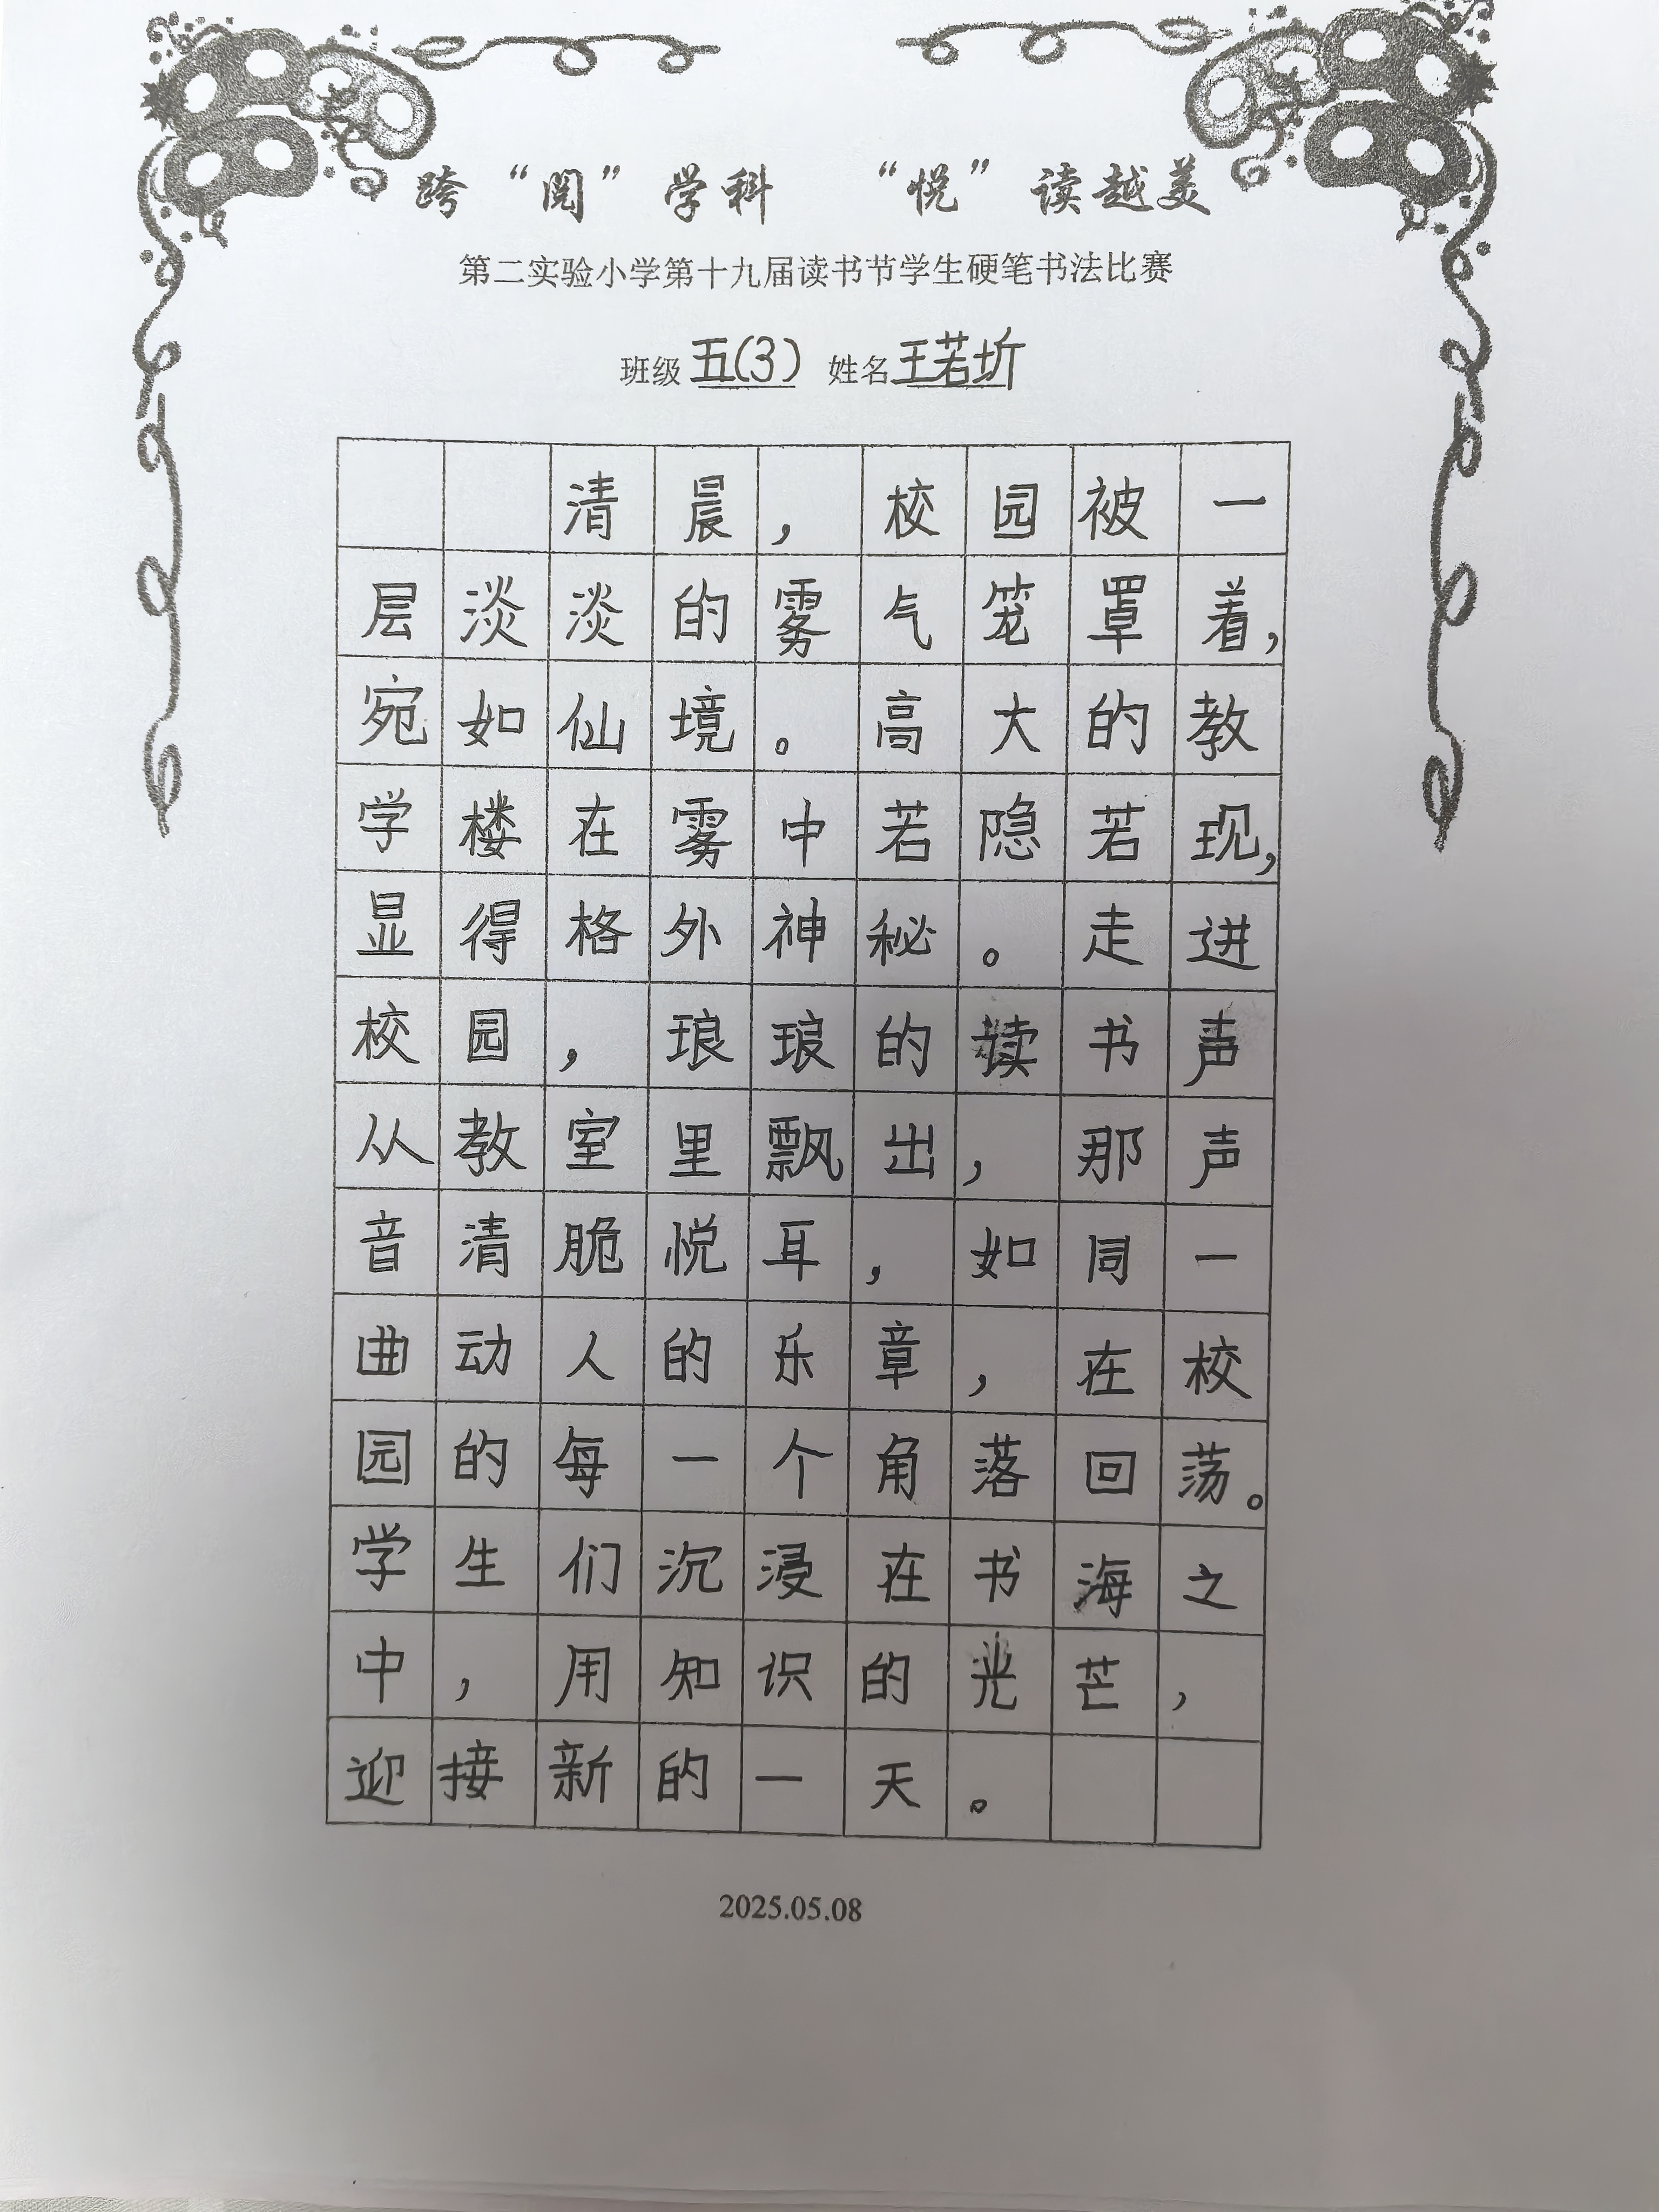 跨“阅”学科 “悦”读越美
第二实验小学第十九届读书节学生硬笔书法比赛
班级 五(3) 姓名 王若圻
清晨，校园被一
层淡淡的雾气笼罩着，
宛如仙境。高大的教
学楼在雾中若隐若现，
显得格外神秘。走进
校园，琅琅的读书声
从教室里飘出，那声
音清脆悦耳，如同一
曲动人的乐章，在校
园的每一个角落回荡。
学生们沉浸在书海之
中，用知识的光芒，
迎接新的一天。
2025.05.08